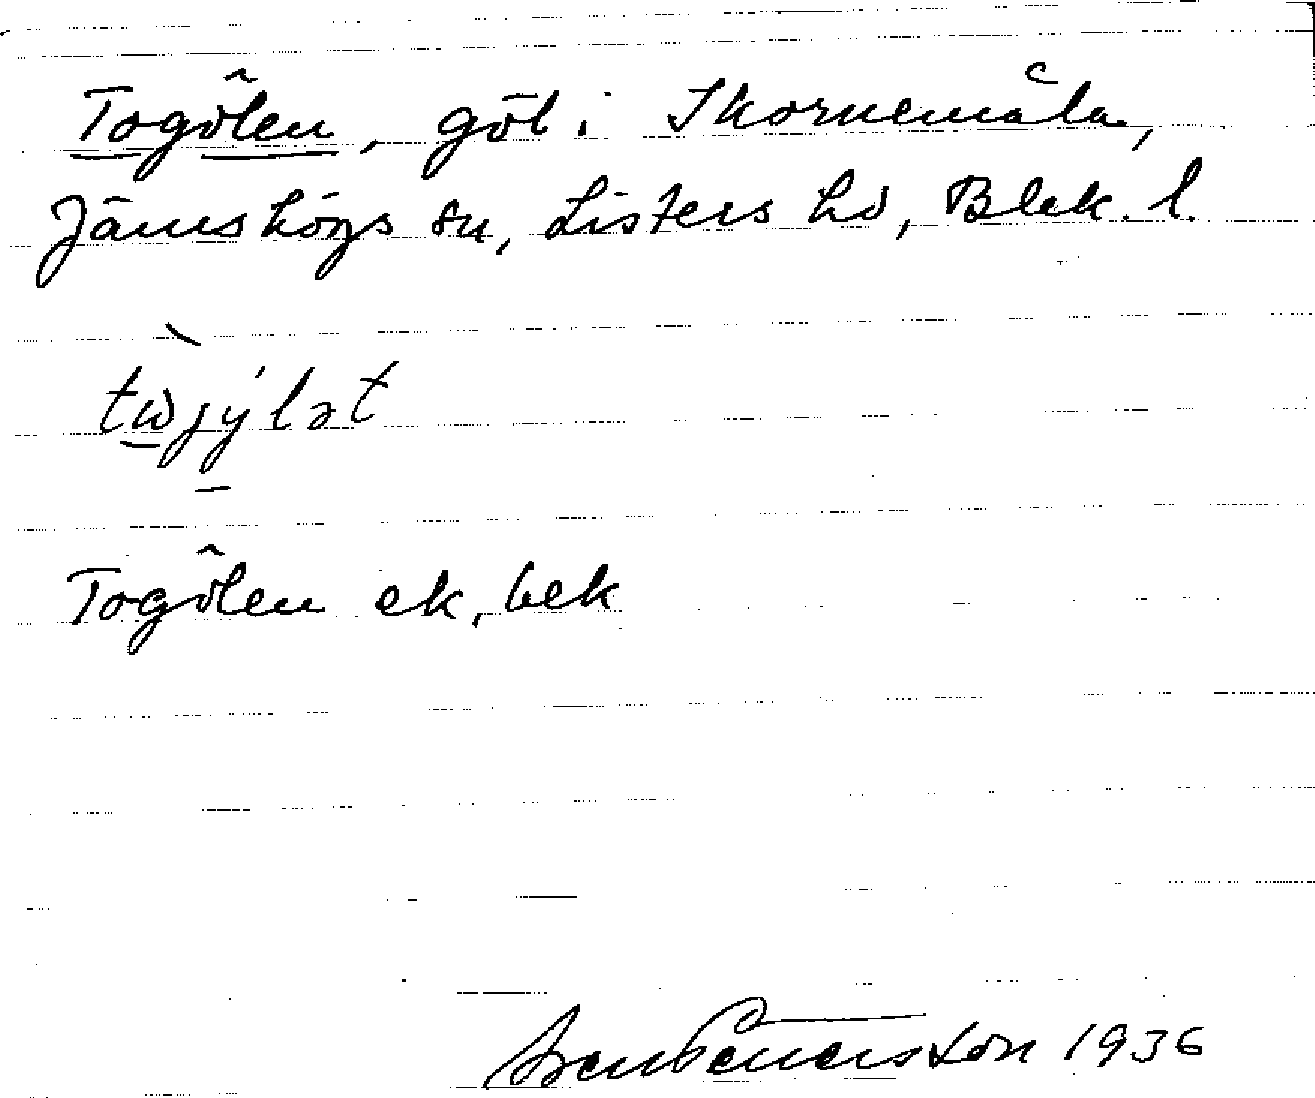 Togölen, göl i Skornemåla,
Jämshögs sn, Listers hd, Blek. l.
tὼjýlət
Togölen ek, bek
Sven Benson 1936